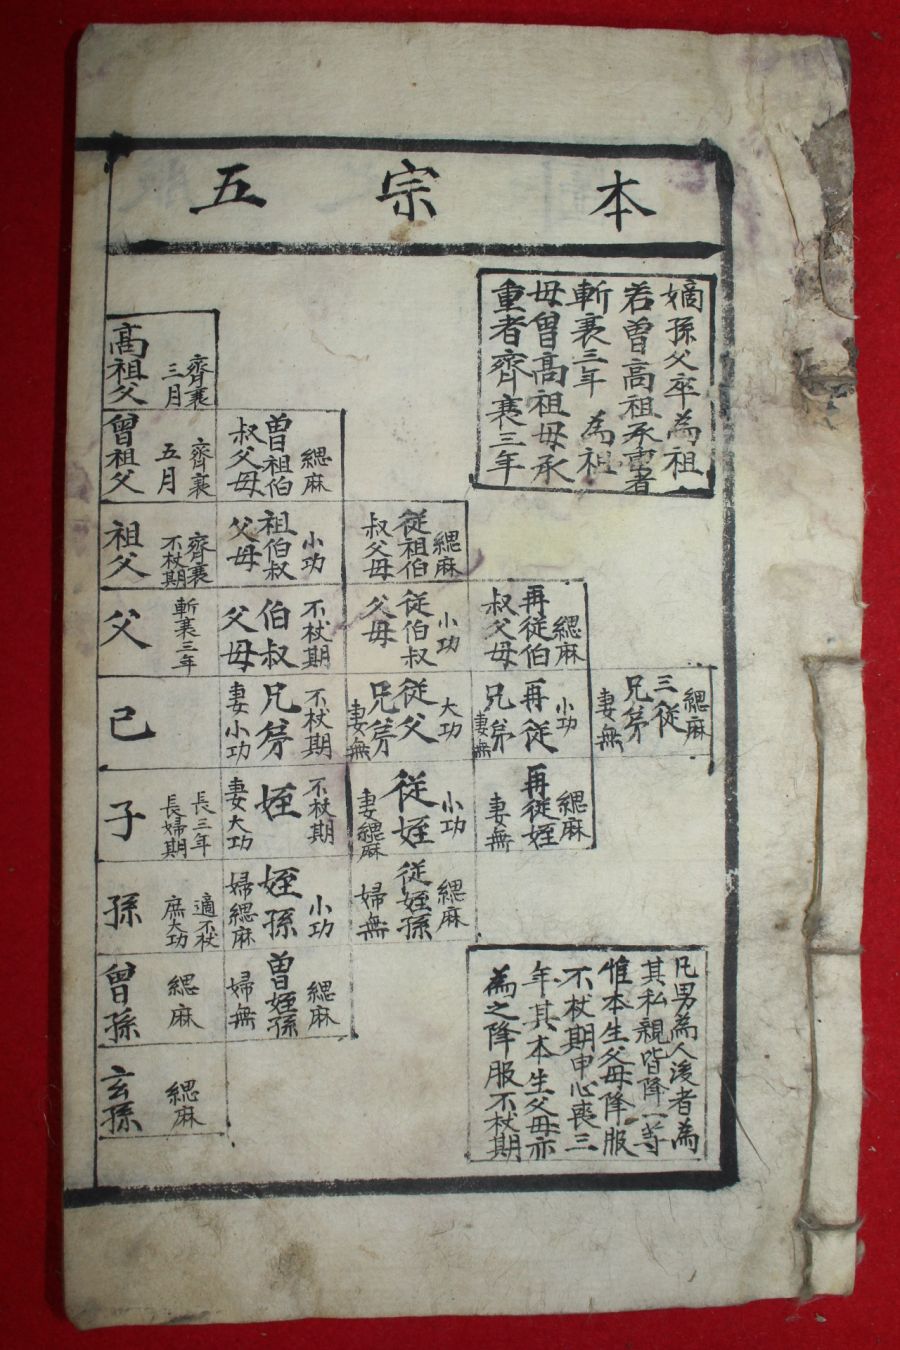 本宗五
嫡孫父卒為祖
若曾高祖承重者
斬衰三年為祖
母曾高祖母承
重者齊衰三年
高祖父
齊衰
三月
曾祖父
齊衰
五月
曾祖伯
叔父母
緦麻
祖父
齊衰
不杖期
祖伯叔
父母
小功
從祖伯
叔父母
緦麻
父
斬衰三年
伯叔
父母
不杖期
從伯叔
父母
小功
再從伯
叔父母
緦麻
己
兄弟
不杖期
妻小功
從父
兄弟
大功
妻無
再從
兄弟
小功
妻無
三從
兄弟
緦麻
妻無
子
長三年
長婦期
姪
不杖期
妻大功
從姪
小功
妻緦麻
再從姪
緦麻
妻無
孫
適不杖
庶大功
姪孫
小功
婦緦麻
從姪孫
緦麻
婦無
曾孫
緦麻
曾姪孫
緦麻
婦無
玄孫
緦麻
凡男為人後者為
其私親皆降一等
惟本生父母降服
不杖期申心喪三
年其本生父母亦
為之降服不杖期